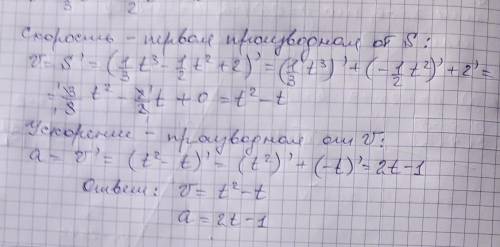 3 2
Скорость - первая производная от S:
v = S' = (1/3 t³ - 1/2 t² + 2)' = (1/3 t³)' + (-1/2 t²)' + 2' =
= 3/3 t² - 2/2 t + 0 = t² - t
Ускорение - производная от v:
a = v' = (t² - t)' = (t²)' + (-t)' = 2t - 1
Ответ: v = t² - t
a = 2t - 1